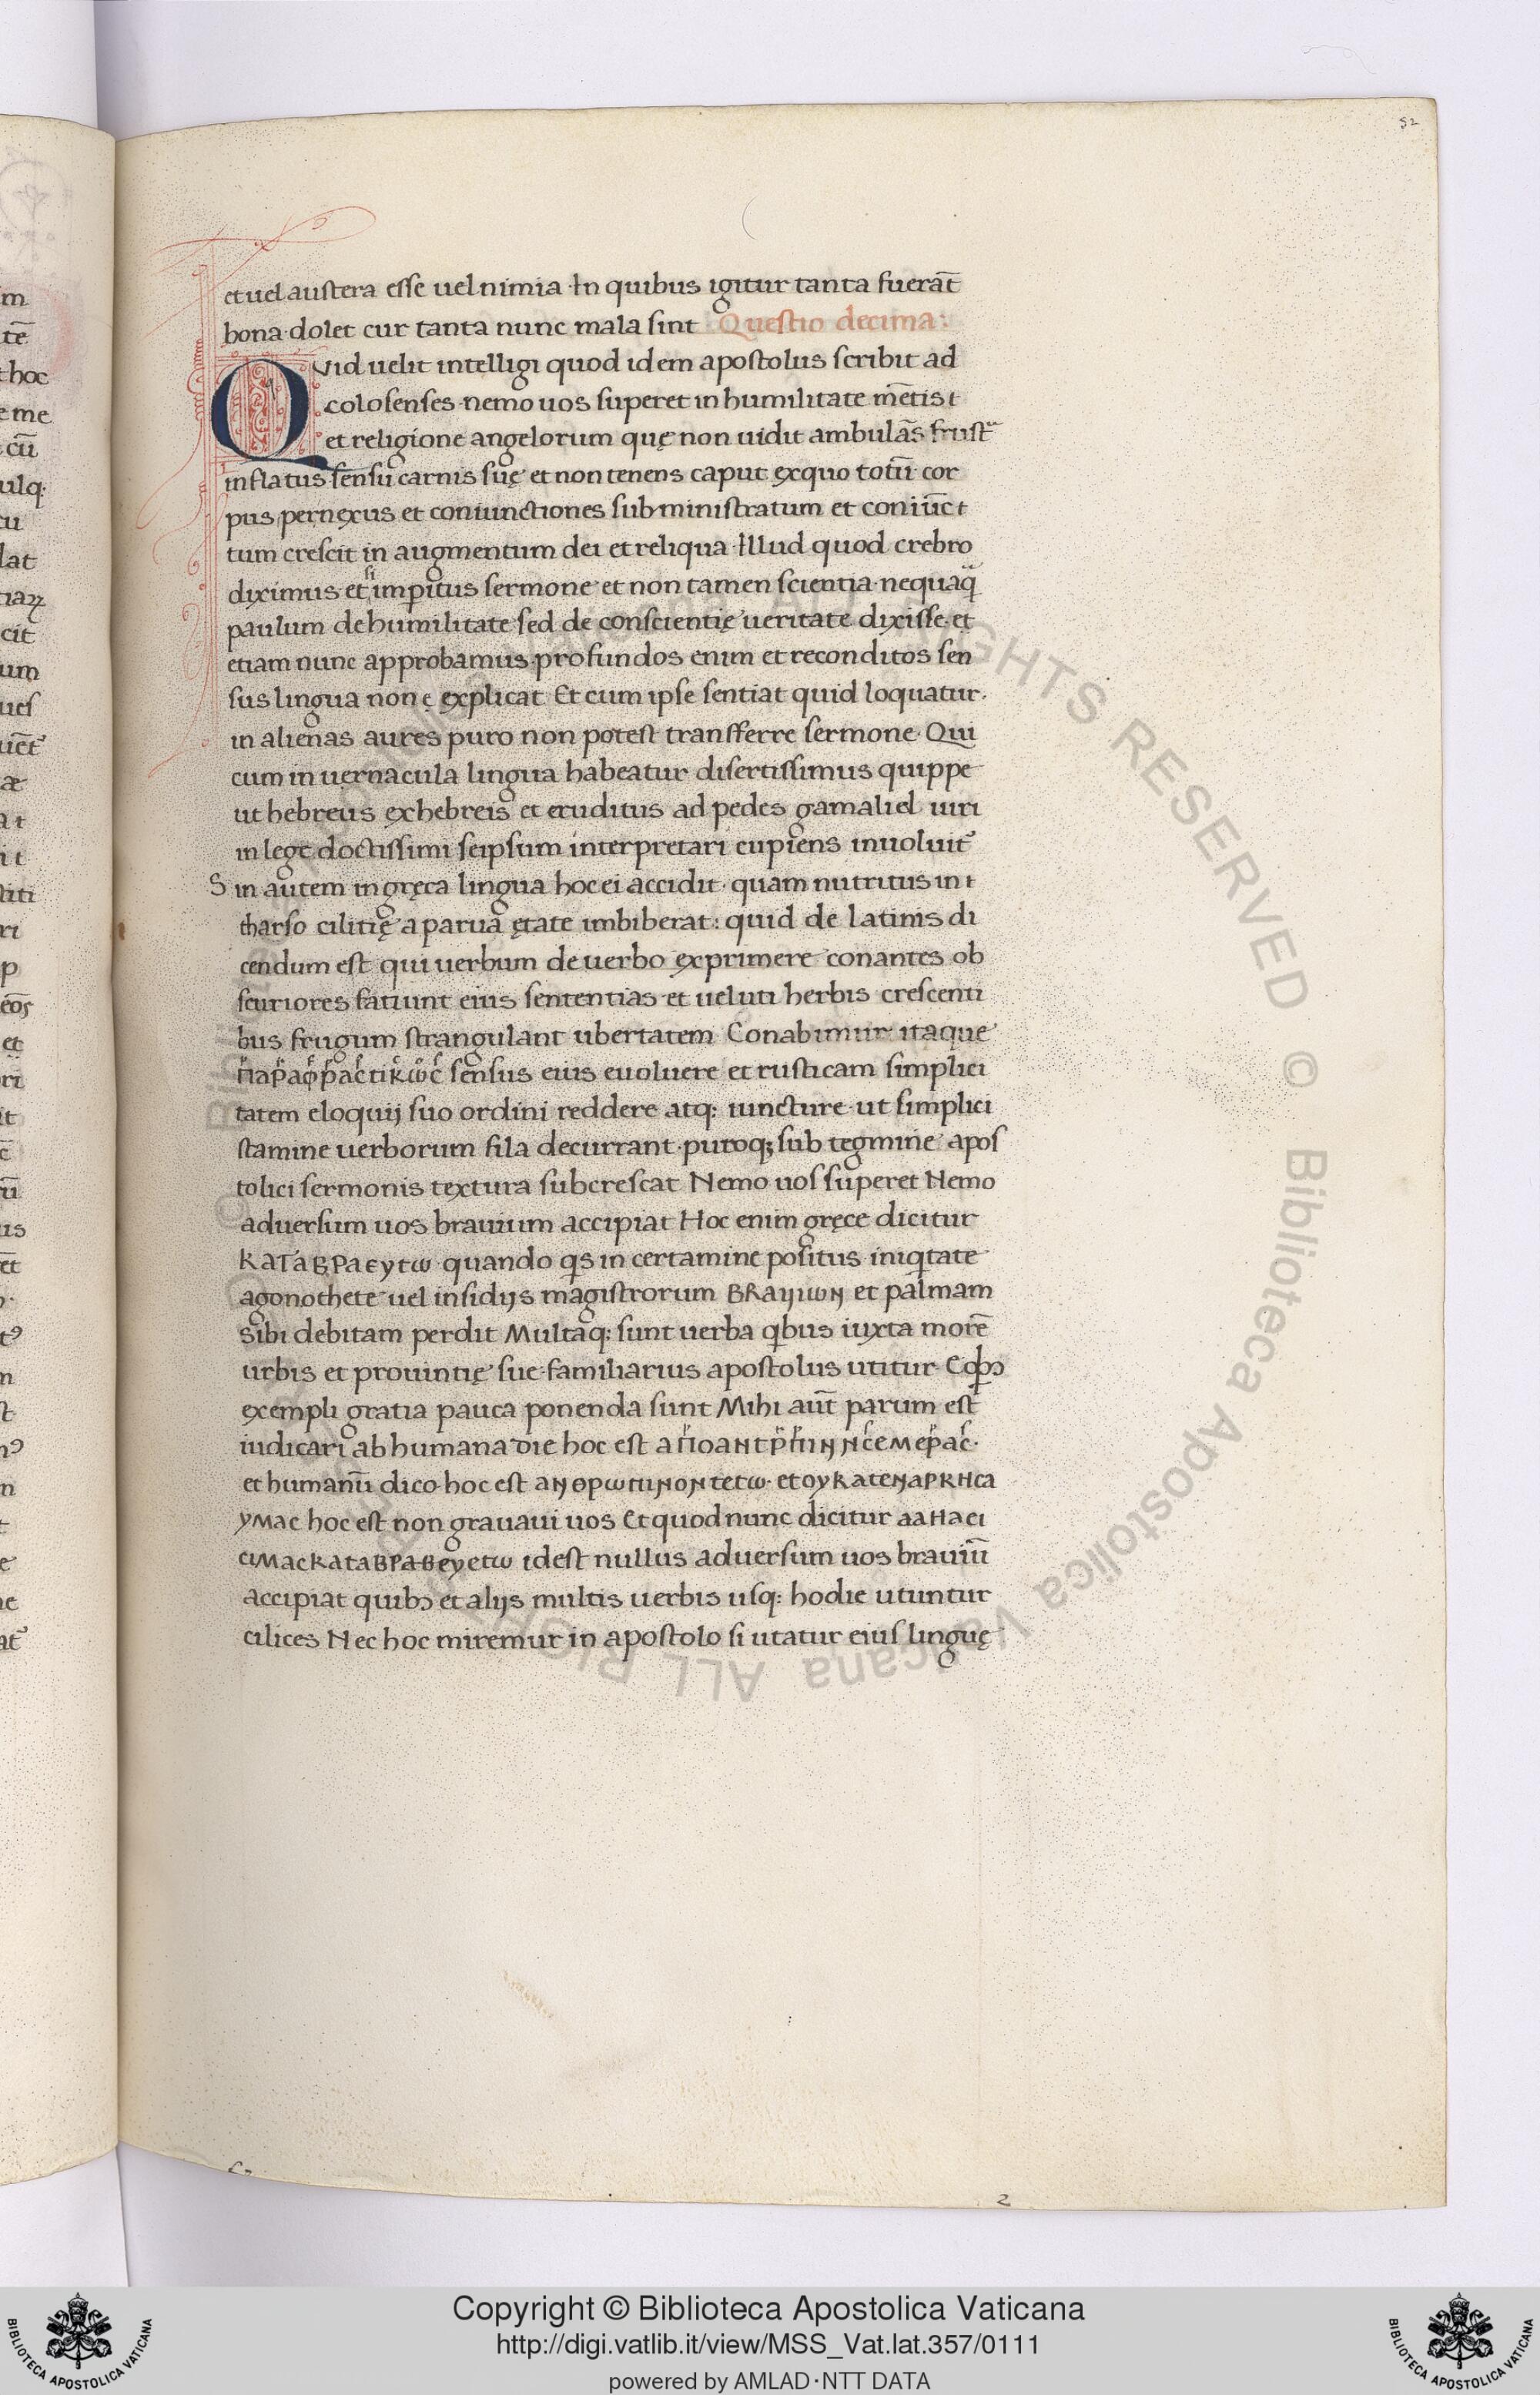 52
et uel austera esse uel nimia · In quibus igitur tanta fuerãt
bona · dolet cur tanta nunc mala sint · Questio decima :
Quid uelit intelligi quod idem apostolus scribit ad
colosenses · nemo uos superet in humilitate mẽtis
et religione angelorum quę non uidit ambulãs frust
inflatus sensu carnis suę et non tenens caput exquo totũ cor
pus pernexus et coniunctiones subministratum et coniũc
tum crescit in augmentum dei et reliqua · Illud quod crebro
diximus et si imperitus sermone et non tamen scientia · nequaq̃
paulum de humilitate sed de conscientię ueritate dixisse · et
etiam nunc approbamus · profundos enim et reconditos sen
sus lingua non ę explicat Et cum ipse sentiat quid loquatur ·
in alienas aures puro non potest transferre sermone · Qui
cum in uernacula lingua habeatur disertissimus quippe
ut hebreus exhebreis et eruditus ad pedes gamaliel uiri
in lege doctissimi seipsum interpretari cupiens inuoluit
S in autem in gręca lingua hoc ei accidit · quam nutritus in
tharso cilitię a parua ętate imbiberat : quid de latinis di
cendum est qui uerbum de uerbo exprimere conantes ob
scuriores fatiunt eius sententias et ueluti herbis crescenti
bus frugum strangulant ubertatem Conabimur itaque
παραφραστικως sensus eius euoluere et rusticam simplici
tatem eloquij suo ordini reddere atq: iuncture · ut simplici
stamine uerborum fila decurrant · puroq; sub tegmine apos
tolici sermonis textura subcrescat Nemo uos superet Nemo
aduersum uos brauium accipiat Hoc enim gręce dicitur
ΚΑΤΑΒΡΑΕΥΤω quando qs in certamine positus · iniqtate
agonothete uel insidijs magistrorum ΒRΑΥΙωΝ et palmam
sibi debitam perdit Multaq: sunt uerba qbus iuxta morẽ
urbis et prouintię sue · familiarius apostolus utitur
exempli gratia pauca ponenda sunt Mihi aũt parum est
iudicari ab humana die hoc est
et humanũ dico · hoc est ΑΝΘΡωΠΙΝΟΝ ΤΕΤω · et ΟΥ ΚΑΤΕΝΑΡΚΗCΑ
ΥΜΑC hoc est non grauaui uos Et quod nunc dicitur ΑΑΗΑΕΙ
ΕΙΜΑCΚΑΤΑΒΡΑΒΕΥΕΤω idest nullus aduersum uos brauiũ
accipiat quibꝰ et alijs multis uerbis usq: hodie utuntur
cilices Nec hoc miremur in apostolo si utatur eius linguę
2
Copyright © Biblioteca Apostolica Vaticana
http://digi.vatlib.it/view/MSS_Vat.lat.357/0111
powered by AMLAD·NTT DATA
BIBLIOTECA APOSTOLICA VATICANA
BIBLIOTECA APOSTOLICA VATICANA